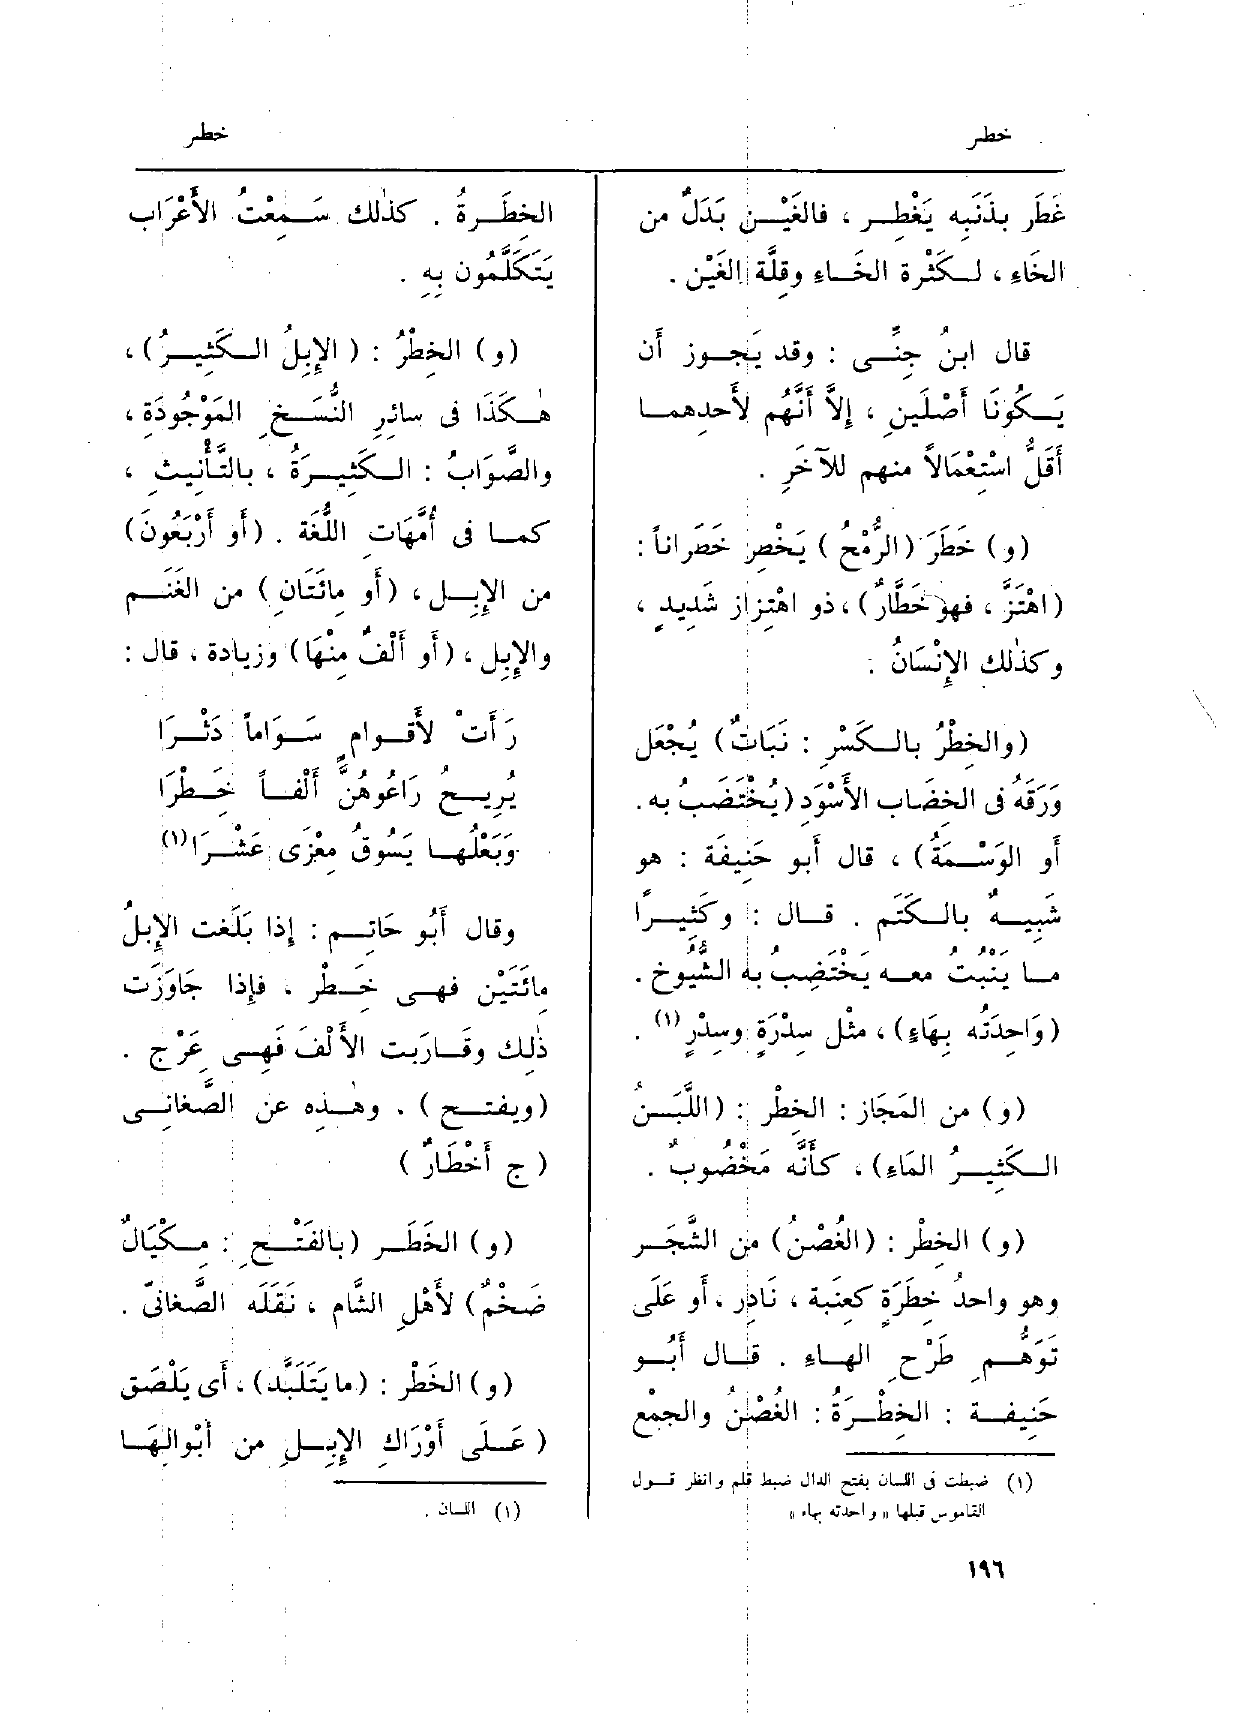 خطر
خطر
غَطَر بذَنَبِه يَغْطِر ، فالغَيْن بَدَلٌ من
الخَاءِ ، لكَثْرة الخَاءِ وقِلَّة الغَيْن .
قال ابنُ جِنِّى : وقد يَجوز أَن
يَكُونَا أَصْلَين ، إِلاَّ أَنَّهُم لأَحدِهما
أَقَلُّ اسْتِعْمَالاً منهم للآخَرِ .
(و) خَطَرَ (الرُّمْحُ) يَخْطِر خَطَرَاناً :
(اهْتَزَّ ، فهو خَطَّارٌ) ، ذو اهْتِزاز شَدِيد ،
وكَذٰلك الإِنْسَانُ .
(والخِطْرُ بالكَسْرِ : نَبَاتٌ) يُجْعَل
وَرَقُه فى الخِضَاب الأَسْوَد (يُخْتَضَبُ به .
أَو الوَسْمَةُ) ، قال أَبو حَنِيفَة : هو
شَبِيهٌ بالكَتَم . قال : وكَثِيرًا
ما يَنْبُت معه يَخْتَضِب به الشُّيوخ .
(وَاحِدَتُه بِهَاءٍ) ، مثْل سِدْرَةٍ وسِدْرٍ (١) .
(و) من المَجَاز : الخِطْر : (اللَّبَنُ
الكَثِيرُ المَاءِ) ، كأَنَّه مَخْضُوبٌ .
(و) الخِطْر : (الغُصْنُ) من الشَّجَر
وهو واحدُ خِطَرَةٍ كعِنَبة ، نَادِر ، أَو عَلَى
تَوَهُّم طَرْحِ الهاءِ . قال أَبُو
حَنِيفَة : الخِطْرَةُ : الغُصْنُ والجمْع
(١) ضبطت فى اللسان بفتح الدال ضبط قلم وانظر قول
القاموس قبلها « واحدته بهاء »
الخِطَرةُ . كذٰلك سَمِعْتُ الأَعْرَاب
يَتَكَلَّمُون بِهِ .
(و) الخِطْرُ : (الإِبِلُ الكَثِيرُ) ،
هٰكَذَا فى سائرِ النُّسَخِ المَوْجُودَة ،
والصَّوَابُ : الكَثِيرَةُ ، بالتَّأْنِيثِ ،
كما فى أُمَّهَاتِ اللُّغَة . (أَو أَرْبَعُونَ)
من الإِبِل ، (أَو مِائَتَانِ) من الغَنَم
والإِبِل ، (أَو أَلْفٌ مِنْهَا) وزيادة ، قال :
رَأَتْ لأَقْوامٍ سَوَاماً دَثْرَا
يُرِيحُ رَاعُوهُنَّ أَلْفاً خَطْرَا
وَبَعْلُها يَسُوقُ مِعْزَى عَشْرَا (١)
وقال أَبُو حَاتِم : إِذا بَلَغت الإِبِلُ
مِائَتَيْن فهى خَطْر ، فإِذا جَاوَزَت
ذٰلِك وقَارَبَت الأَلْفَ فَهِى عَرْج .
(ويفتح) . وهٰذِه عن الصَّغانِى
(ج أَخْطَارٌ)
(و) الخَطَر (بالفَتْحِ : مِكْيَالٌ
ضَخْمٌ) لأَهْلِ الشَّام ، نَقَلَه الصَّغانىّ .
(و) الخَطْر : (ما يَتَلَبَّد) ، أَى يَلْصَق
(عَلَى أَوْرَاكِ الإِبِلِ من أَبْوالِهَا
(١) اللسان .
١٩٦